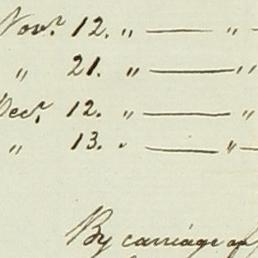 Novr. 12. " — "
" 21. " — "
Decr. 12. " — "
" 13. " — "
By carriage of